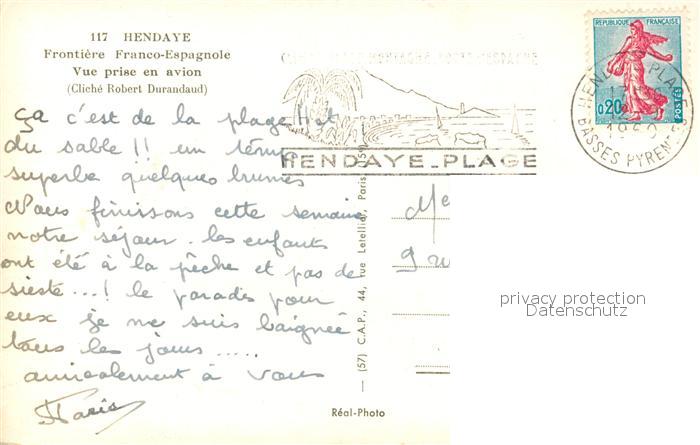 117 HENDAYE
Frontière Franco-Espagnole
Vue prise en avion
(Cliché Robert Durandaud)
ça c'est de la plage et
du sable !! un temps
superbe quelques brumes
Nous finissons cette semaine
notre séjour. les enfants
ont été à la pêche et pas de
sieste...! le paradis pour
eux je me suis baignée
tous les jours .....
amicalement à vous
HENDAYE_PLAGE
REPUBLIQUE FRANÇAISE
0.20
POSTES
HENDAYE PLAGE
BASSES PYRENEES
(57) C.A.P., 44, rue Letellier, Paris (15e)
Me
privacy protection
Datenschutz
Réal-Photo